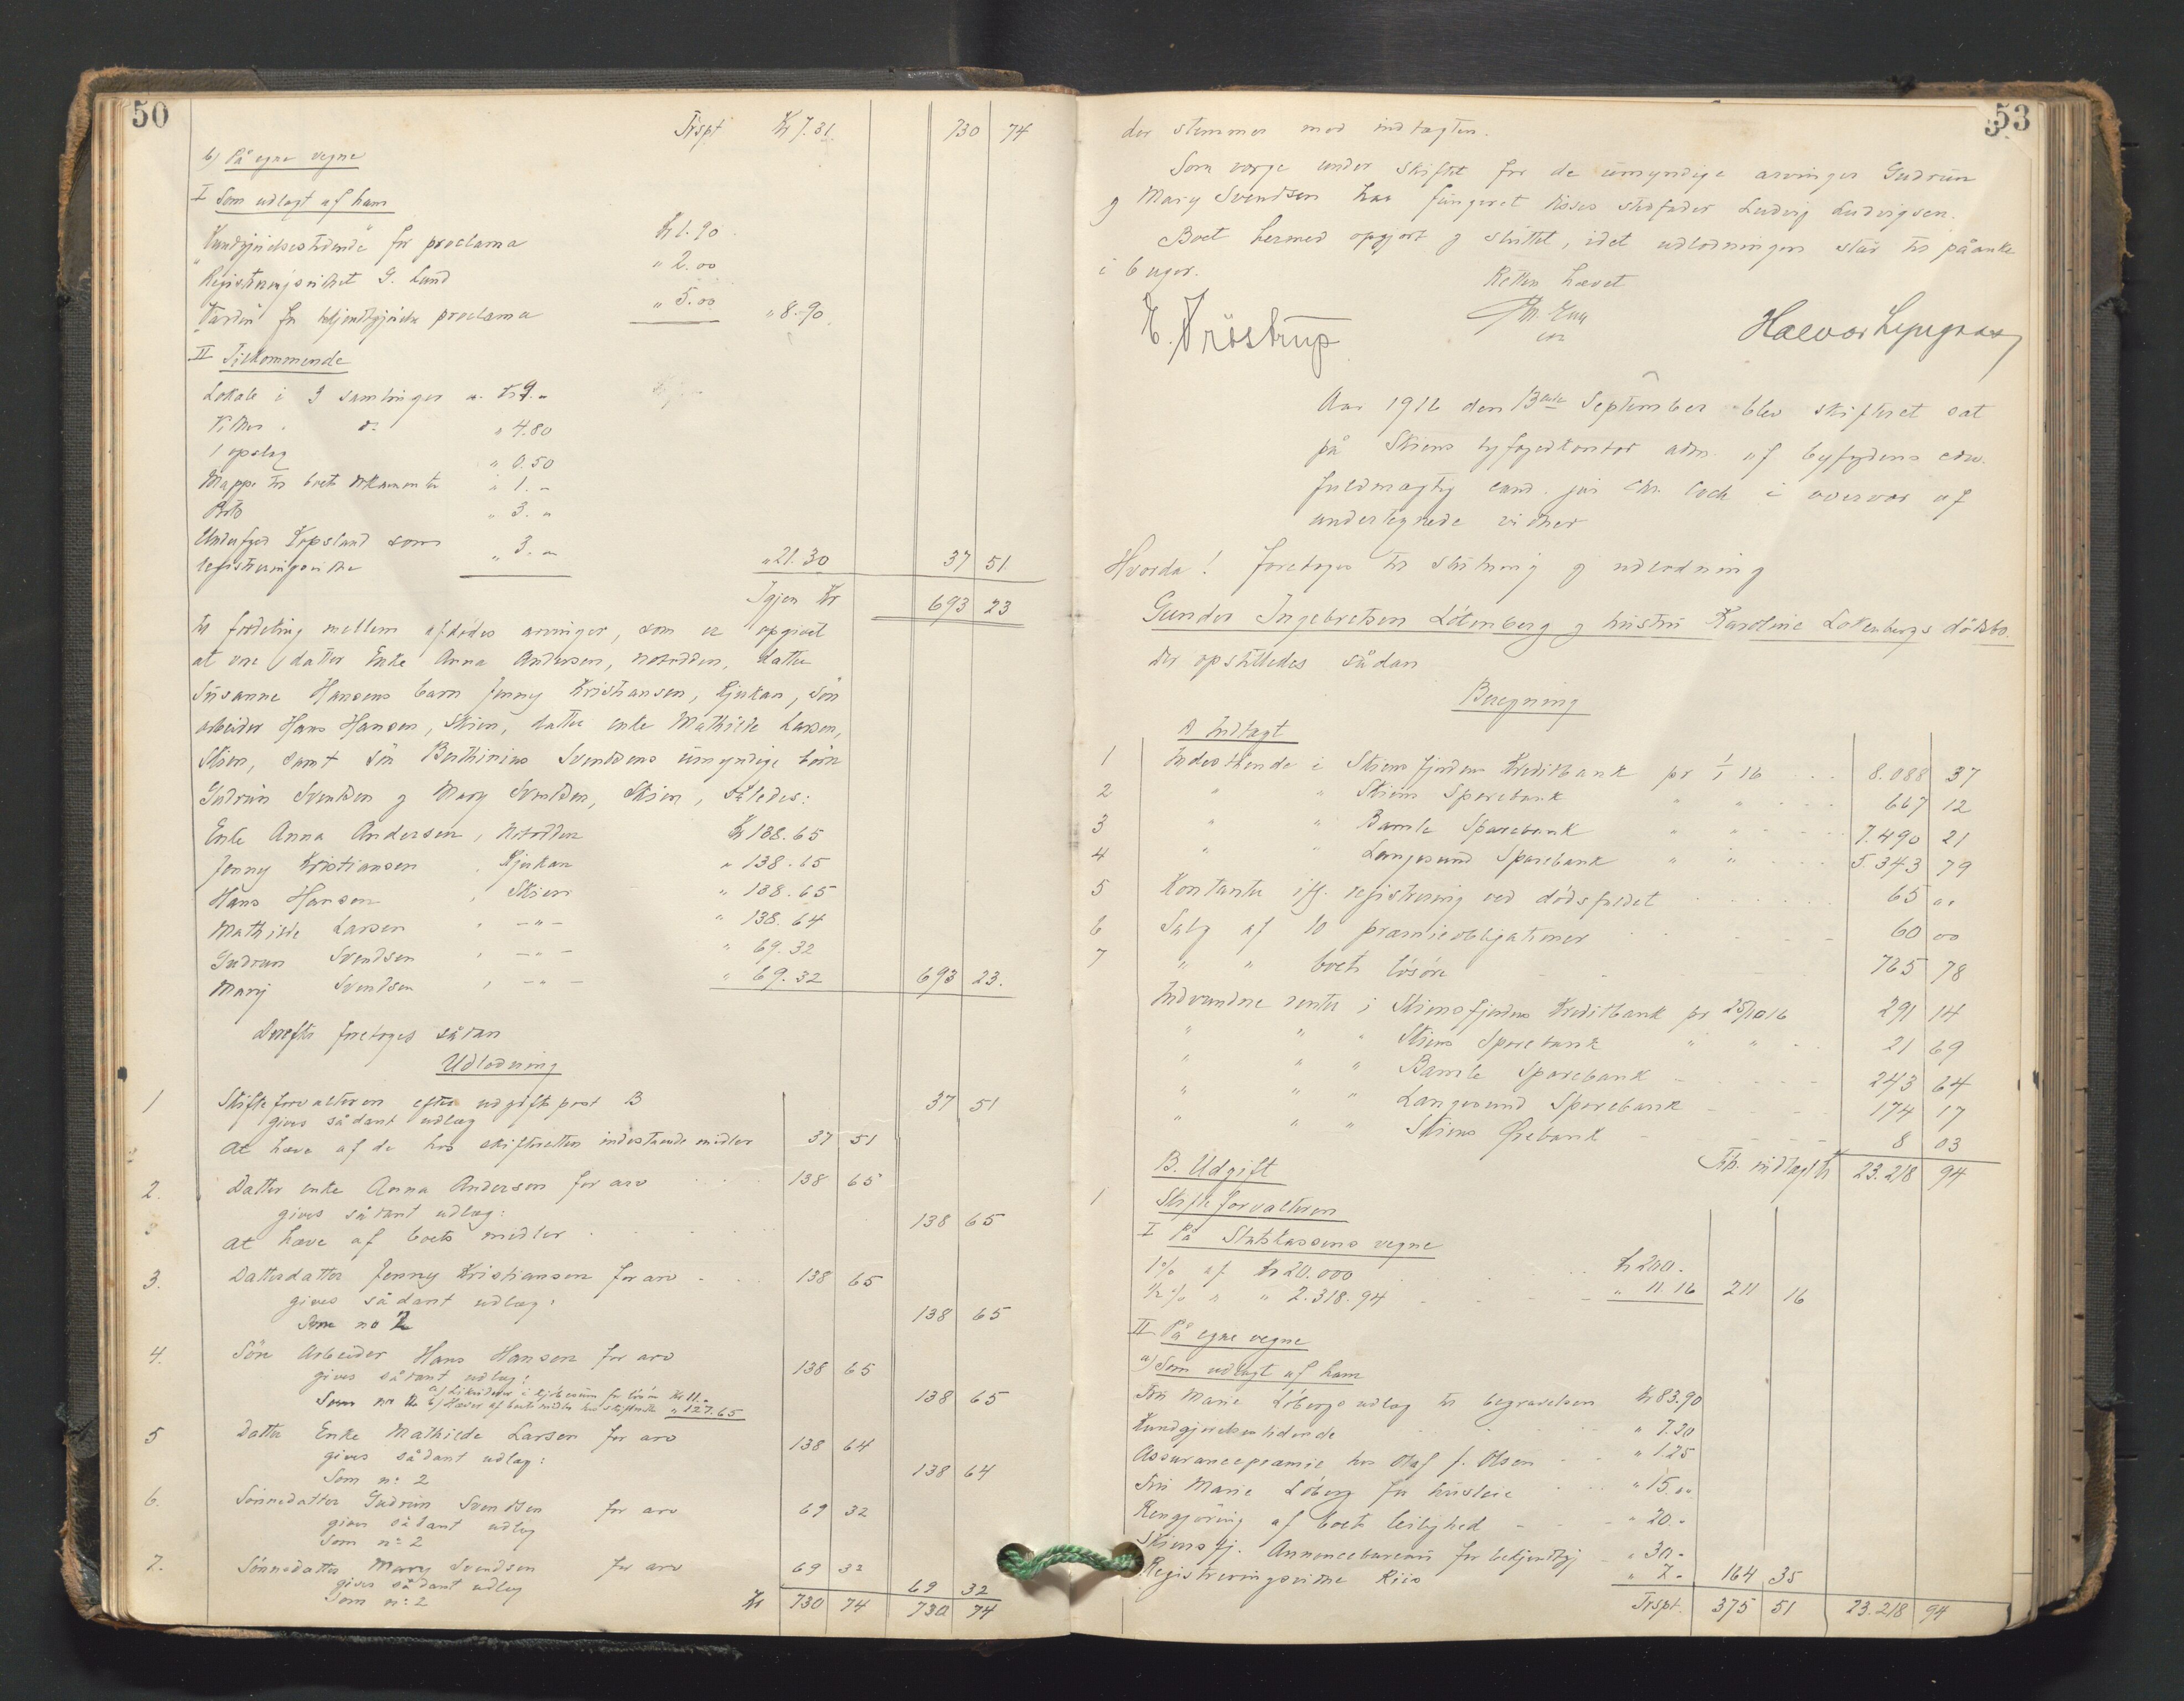 50
Trspt Kr 7.31 730 74
b) På egne vegne
I Som udlagt af ham
"Kundgjørelsestidende" for proclama Kr 1.90
Registreringsvidnet G. Lund " 2.00
"Varden" for bekjendtgjørelse proclama " 5.00 " 8.90
II Tilkommende
Lokale i 3 samlinger a. Kr 9.-
Vidner . d: " 4.80
1 opslag " 0.50
Mappe til boets dokumenter " 1.-
Porto " 3.-
Underfoged Kopsland som
registreringsvidne " 3.- " 21.30 37 51
Igjen Kr 693 23
til fordeling mellem afdødes arvinger, som er opgivet
at være datter Enke Anna Andersen, Notodden, datter
Susanne Hansens barn Jenny Kristiansen, Rjukan, søn
arbeider Hans Hansen, Skien, datter enke Mathilde Larsen,
Skien, samt søn Berthinius Svendsens umyndige børn
Gudrun Svendsen og Mary Svendsen, Skien, således:
Enke Anna Andersen, Notodden Kr 138.65
Jenny Kristiansen , Rjukan " 138.65
Hans Hansen , Skien " 138.65
Mathilde Larsen , - " - " 138.64
Gudrun Svendsen , - " - " 69.32
Mary Svendsen , - " - " 69.32 693 23.
Derefter foretoges sådan
Udlodning
1 Skifteforvalteren efter udgiftspost B 37 51
gives sådant udlæg
At hæve af de hos skifteretten indestaaende midler 37 51
2. Datter enke Anna Andersen for arv 138 65
gives sådant udlæg:
at hæve af boets midler 138 65
3. Datterdatter Jenny Kristiansen for arv 138 65
gives sådant udlæg:
Som no 2 138 65
4. Søn Arbeider Hans Hansen for arv 138 65
gives sådant udlæg:
a) Likviderer i kjøbesum for løsøre Kr 11.-
Som no b) Hæver af boets midler hos skifteretten " 127.65 138 65
5 Datter Enke Mathilde Larsen for arv 138 64
gives sådant udlæg:
Som n: 2 138 64
6. Sønnedatter Gudrun Svendsen for arv 69 32
gives sådant udlæg
Som n: 2
7. Sønnedatter Mary Svendsen for arv 69 32
gives sådant udlæg 69 32
Som n: 2 Kr 730 74 730 74
53
der stemmer med indtagten.
Som verge under skiftet for de umyndige arvinger Gudrun
og Mary Svendsen har fungeret disses stedfader Ludvig Ludvigsen.
Boet hermed opgjort og sluttet, idet udlodningen står til påanke
i 6 uger.
Retten hævet
E. Frøstrup
Aar 1916 den 13de September blev skifteret sat
på Skiens byfogedkontor adm. af byfogdens edsv.
fuldmægtig cand. jur Chr. Cock i overvær af
undertegnede vidner
Hvorda! foretoges til slutning og udlodning
Gunder Ingebretsen Løtenberg og hustru Karoline Løtenbergs dødsbo.
der opstilledes sådan
Beregning
A Indtægt
1 Indestående i Skiensfjordens Kreditbank pr 1/1 16 8.088 37
2 " " Skiens Sparebank " " 667 12
3 " " Bamle Sparebank " " 7.490 21
4 " " Langesund Sparebank " " 5.343 79
5 Kontanter iflg. registrering ved dødsfaldet 65 00
6 Salg af 10 præmieobligationer 60 00
7 " " boets løsøre 765 78
Indvundne renter i Skiensfjordens Kreditbank pr 25/10 16 291 14
" " " Skiens Sparebank " " 21 69
" " " Bamle Sparebank 243 64
" " " Langesund Sparebank 174 17
" " " Skiens Ørebank 8 03
Tilb. indtægt Kr 23.218 94
B. Udgift
1 Skifteforvalteren
I På Statskassens vegne
1% af Kr 20.000 Kr 200.
1/2% " " 2.318.94 " 11.16 211 16
II På egne vegne
a) Som udlagt af ham
Fru Marie Løbergs udlæg til begravelsen Kr 83.90
Kundgjørelsestidende " 7.20
Assurancepræmie hos Olaf J. Olsen " 1.25
Fru Marie Løberg for husleie " 15.00
Rengjøring af boets leilighed " 20.-
Skiensfj. Annoncebureau for bekjendtgj " 30.-
Registreringsvidne Riis " 7.- 164 35
Trspt. 375 51 23.218 94